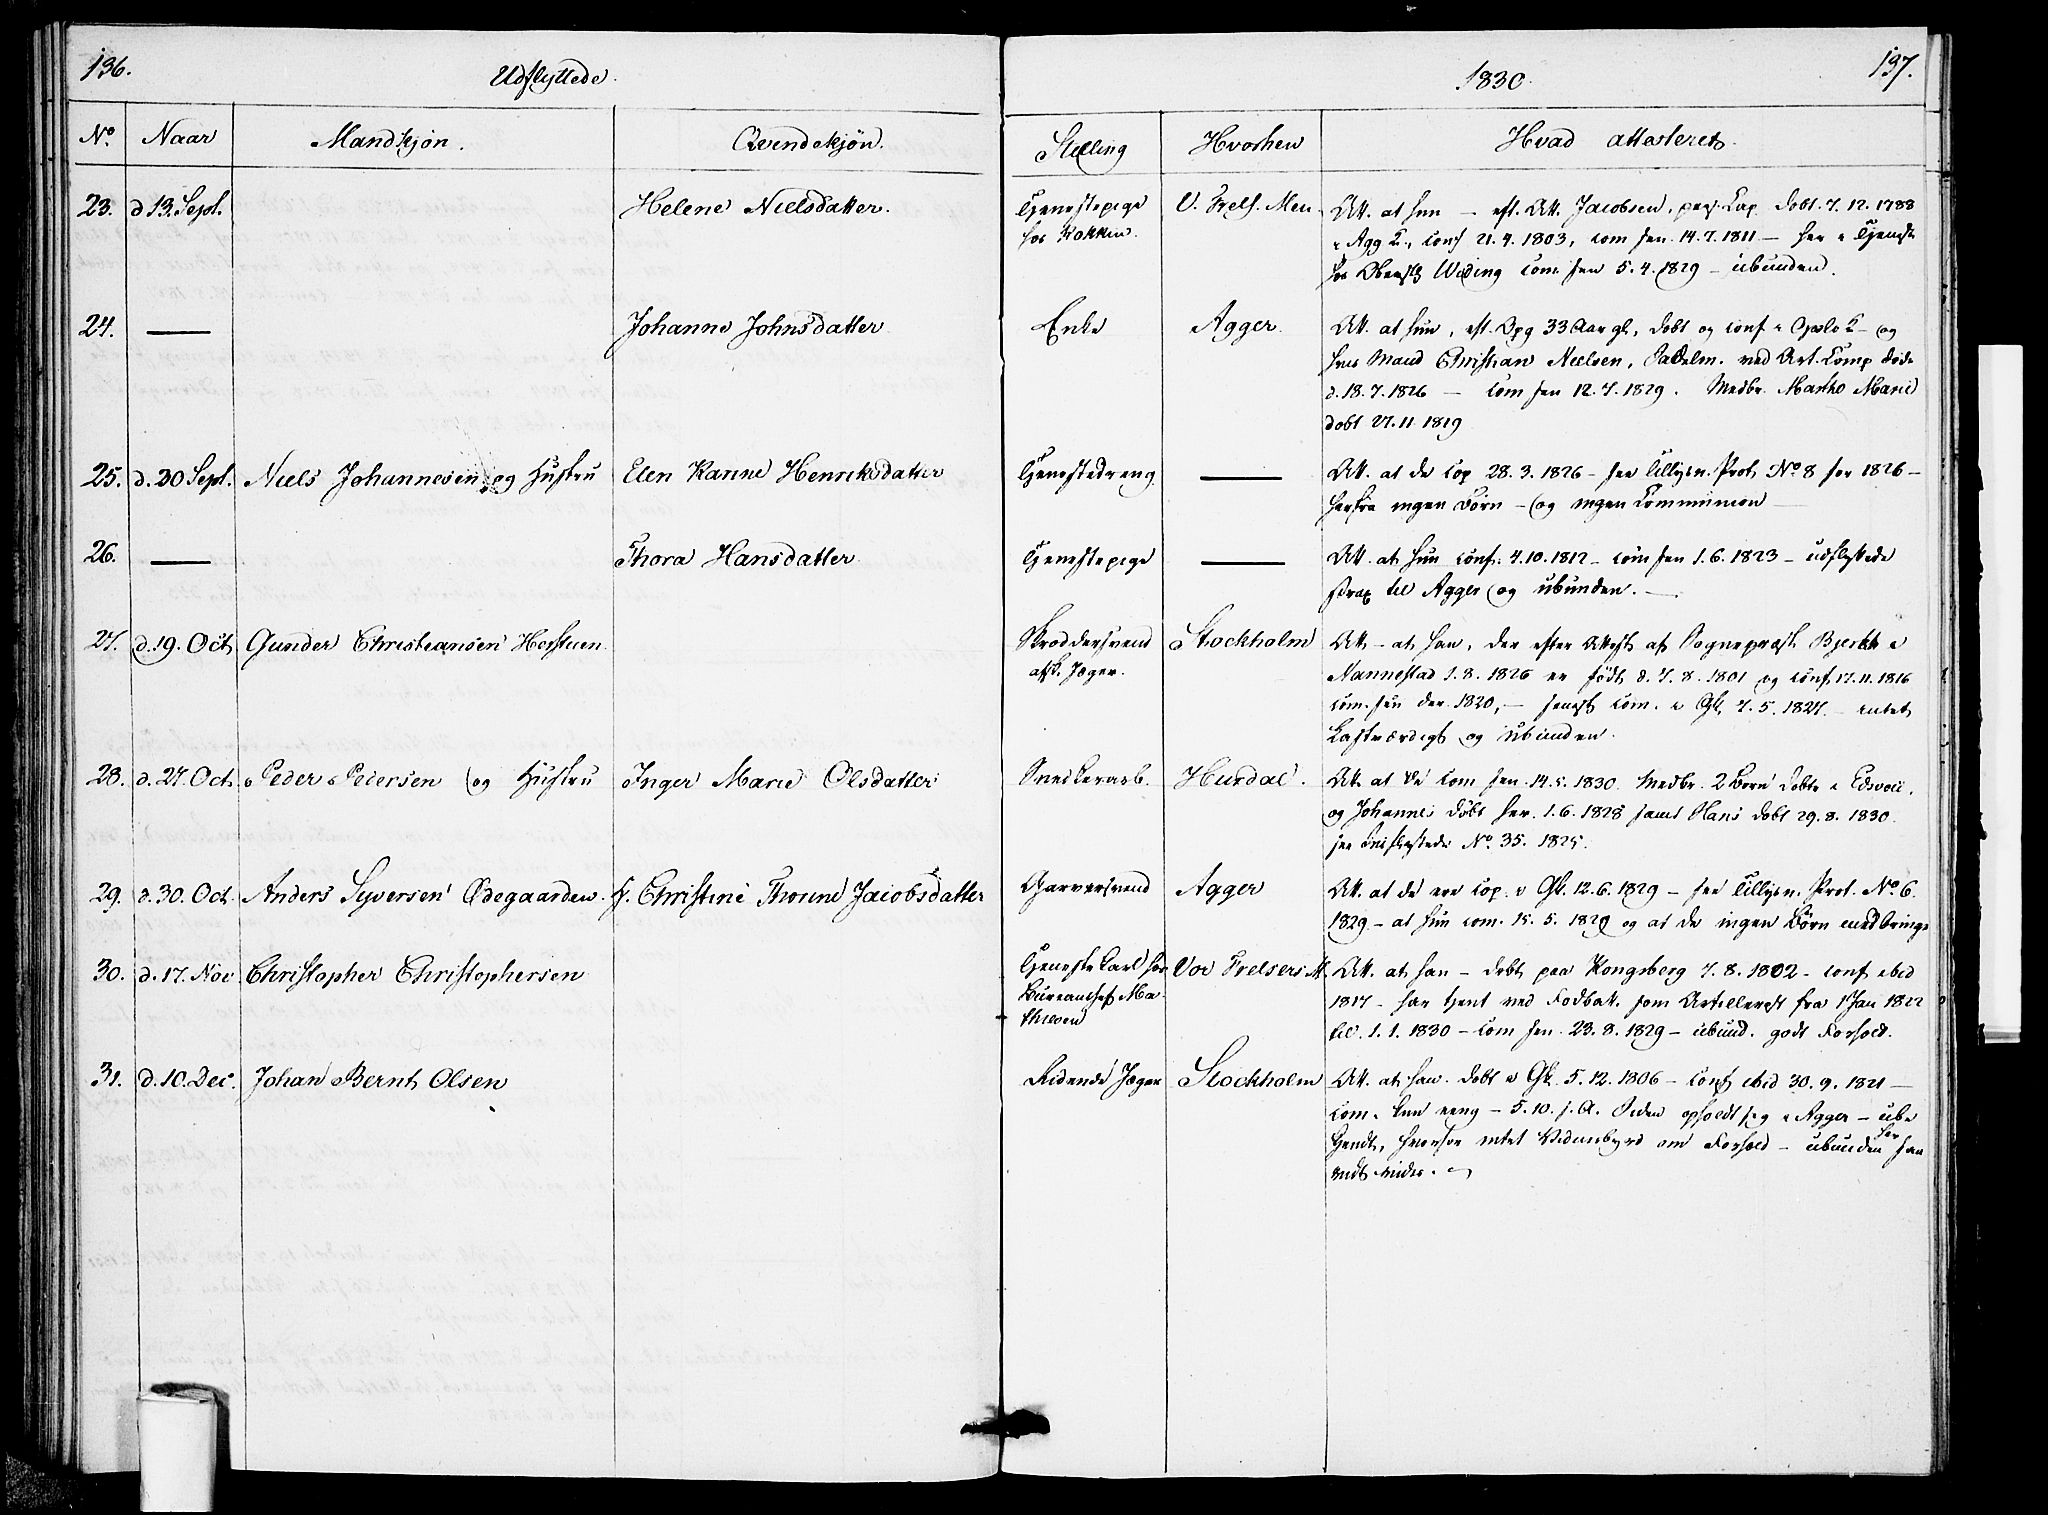 136.
Udflyttede.
1830.
137.
No.
Naar
Mandkjøn.
Qvindekjøn.
Stilling
Hvorhen
Hvad attesteret.
23. d 13. Sept. Helene Nielsdatter. Tjenestepige V. Frels. Men. Att. at hun – eft. Att. Jacobsen, pers. Cap. døbt 7.12.1788
hos Kokkin. i Agg K., conf 21.4.1803, com sen. 14.7.1811 – her i Tjeneste
hos Oberstl Widing com sen 5.4.1829 – ubunden.
24. — Johanne Johnsdatter Enke Agger. Att. at hun, eft. Opg 33 Aar gl., døbt og conf i Opslo K – og
hvis Mand Christian Nielsen, Sadelm. ved Art. Comp døde
d. 18.7.1826 – com sen 12.7.1829. Medbr. Marthe Marie
døbt 27.11.1819
25. d. 20 Sept. Niels Johannesen og Hustru Elen Karine Henriksdatter Tjenestedreng — Att. at de cop 28.3.1826 – see Tillysn. Prot. No 8 for 1826 –
herfra ingen Børn – og ingen Communion —
26. — Thora Hansdatter Tjenestepige — Att. at hun conf. 4.10.1812 – com sen 1.6.1823 – udflyttede
strax til Agger og ubunden. —
27. d. 19. Oct Gunder Christiansen Herstuen Skræddersvend Stockholm Att – at han, der efter Attest af Sognepræst Bjerke i
afsk. Jæger. Nannestad 1.8.1826 er født d. 7.8.1801 og conf 17.11.1816
com. sen der 1820, – senest com. i Gk 7.5.1827 – intet
Lastværdigt og ubunden.
28. d. 27. Oct. Peder Petersen og Hustru Inger Marie Olsdatter Snedkerarb. Hurdal. Att. at de com sen. 14.5.1830. Medbr. 2 Børn døbte i Edsvold,
og Johannes døbt her. 1.6.1828 samt Hans døbt 29.8.1830
see Indflyttede No. 35. 1825.
29. d. 30. Oct. Anders Syversen Ødegaarden. H. Christine Thorine Jacobsdatter Garversvend Agger Att. at de ere cop. i Gk. 12.6.1829 – see Tillysn. Prot. No. 6.
1829 – at hun com. 15.5.1829 og at de ingen Børn medbringe
30. d. 17. Nov Christopher Christophersen Tjenestekarl hos Vor Frelsers M. Att. at han – døbt paa Kongsberg 7.8.1802 – conf ibid
Bureauchef Ma- 1817 – har tjent ved Fodbat. som Artillerist fra 1 Jan 1822
thiesen til 1.1.1830 – com sen. 23.8.1829 – ubund. godt Forhold.
31. d. 10. Dec. Johan Bernt Olsen Ridende Jæger Stockholm Att. at han. døbt i Gk. 5.12.1806 – conf ibid 30.9.1821 —
com. kun eeng – 5.10. s. A. Siden opholdt sig i Agger – ube
kjendt, hvorfor intet Vidnesbyrd om Forhold – ubunden her saa
vidt vides.